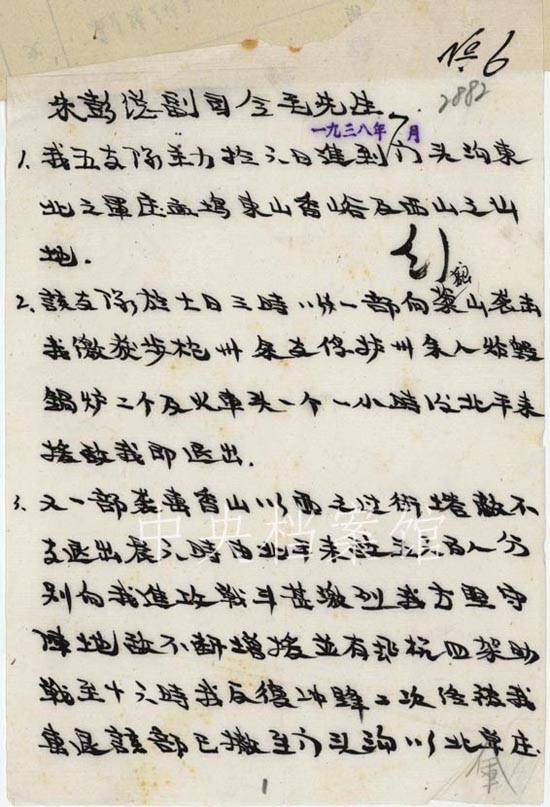 6
2882
朱彭总副司令毛先生
一九三八年7月
1. 我五支隊主力於六日進到门头沟東
北之軍庄 東山香峪及西山之山
地.
2. 該支隊於十日三時以一部向 山袭击
我缴获步枪卅余支俘护卅余人炸毀
鍋炉二个及火車头一个一小時后北平来
援敌我即退出.
3. 又一部袭击香山以西之 塔敌不
支退出晨六時由北平来 百人分
别向我進攻戰斗甚激烈我方坚守
陣地敌不断增援並有飛机四架助
戰至十六時我反復冲鋒二次 被我
击退該部已撤至门头沟以北軍庄.
中央档案馆
1